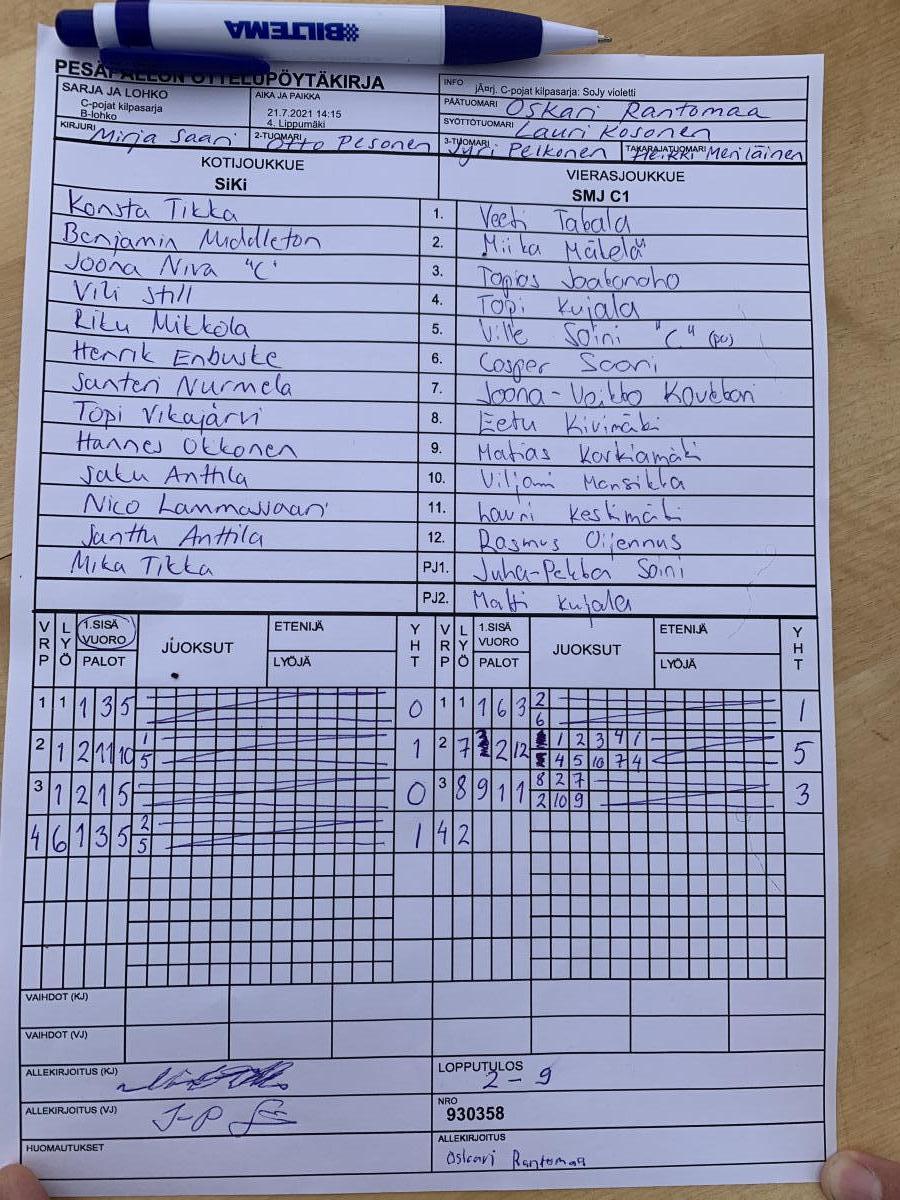 BILTEMA
PESÄPALLON OTTELUPÖYTÄKIRJA
SARJA JA LOHKO
C-pojat kilpasarja
B-lohko
AIKA JA PAIKKA
21.7.2021 14:15
4. Lippumäki
INFO jÄ¤rj. C-pojat kilpasarja: SoJy violetti
PÄÄTUOMARI Oskari Rantomaa
SYÖTTÖTUOMARI Lauri Kosonen
KIRJURI Mirja Saari 2-TUOMARI Otto Pesonen 3-TUOMARI Jyri Pelkonen TAKARAJATUOMARI Heikki Meriläinen
KOTIJOUKKUE VIERASJOUKKUE
SiKi SMJ C1
Konsta Tikka 1. Veeti Tabala
Benjamin Middleton 2. Miika Mäkelä
Joona Niva "C" 3. Topias Jaakonaho
Vili Still 4. Topi Kujala
Riku Mikkola 5. Ville Soini "C" (po)
Henrik Enbuske 6. Casper Saari
Santeri Nurmela 7. Joona-Veikko
Topi Vikajärvi 8. Eetu Kivimäki
Hannes Okkonen 9. Matias Karkiamäki
Saku Anttila 10. Viljami Mansikka
Nico Lammassaari 11. Lauri Keskimäki
Santtu Anttila 12. Rasmus Oijennus
Mika Tikka PJ1. Juha-Pekka Soini
PJ2. Matti Kujala
VRP LYÖ 1.SISÄ VUORO PALOT JUOKSUT ETENIJÄ LYÖJÄ YHT VRP LYÖ 1.SISÄ VUORO PALOT JUOKSUT ETENIJÄ LYÖJÄ YHT
1 1 1 3 5 0 1 1 1 6 3 2 1
6
2 1 2 11 10 1 1 2 7 2 12 1 2 3 4 1 5
5 4 5 10 7 4
3 1 2 1 5 0 3 8 9 1 1 8 2 7 3
2 10 9
4 6 1 3 5 2 1 4 2
5
VAIHDOT (KJ)
VAIHDOT (VJ)
ALLEKIRJOITUS (KJ)
LOPPUTULOS
2 - 9
ALLEKIRJOITUS (VJ) J-P
NRO
930358
HUOMAUTUKSET
ALLEKIRJOITUS
Oskari Rantomaa